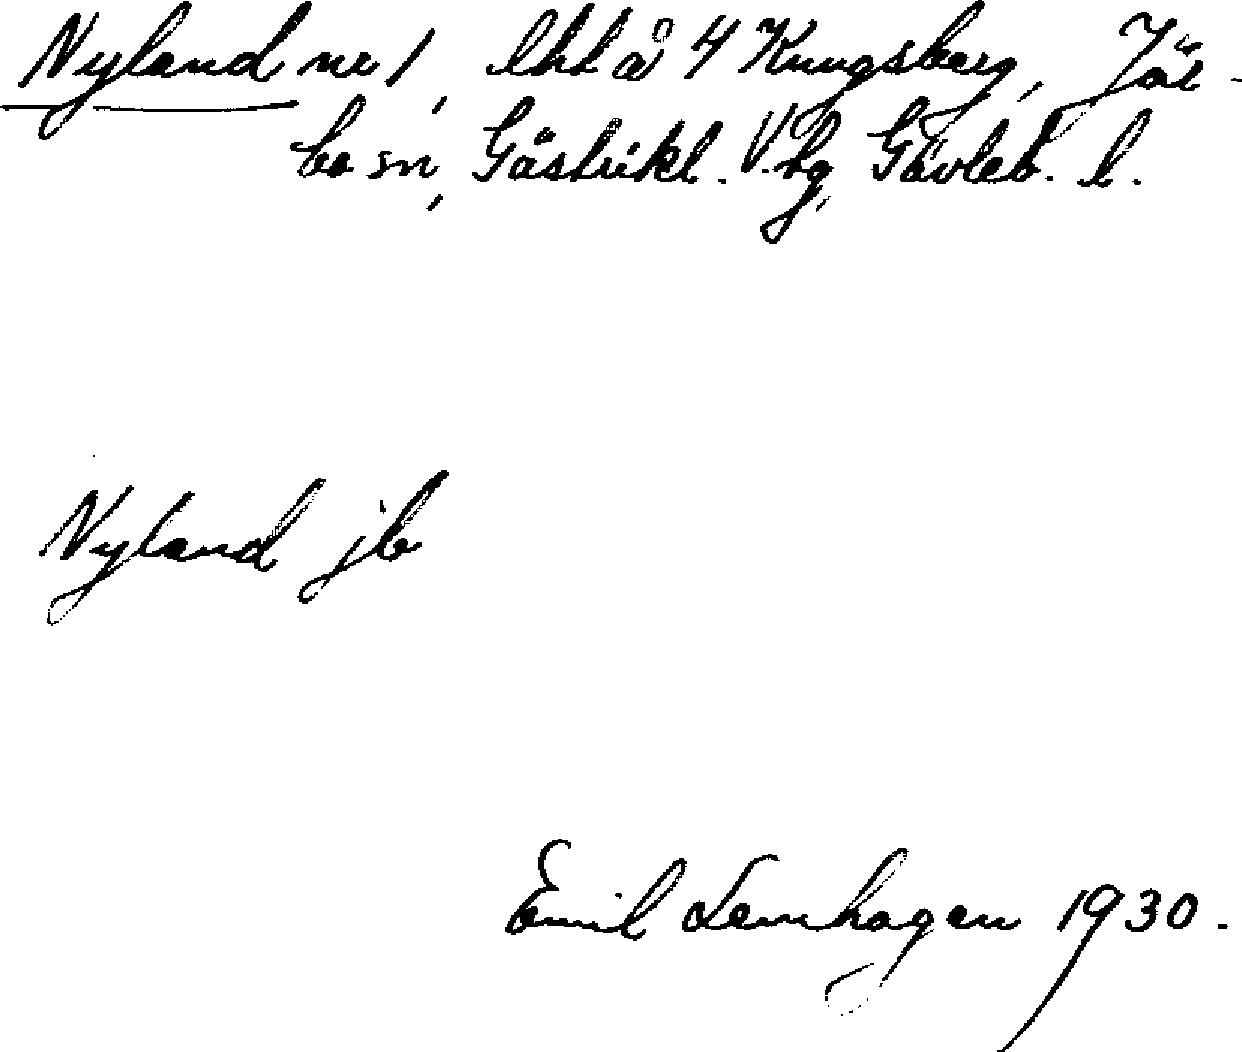 Nyland nr 1, lht å 4 Kungsberg, Jär-
bo sn, Gästrikl. V. hg, Gävleb. l.
Nyland jb
Emil Lenhagen 1930.